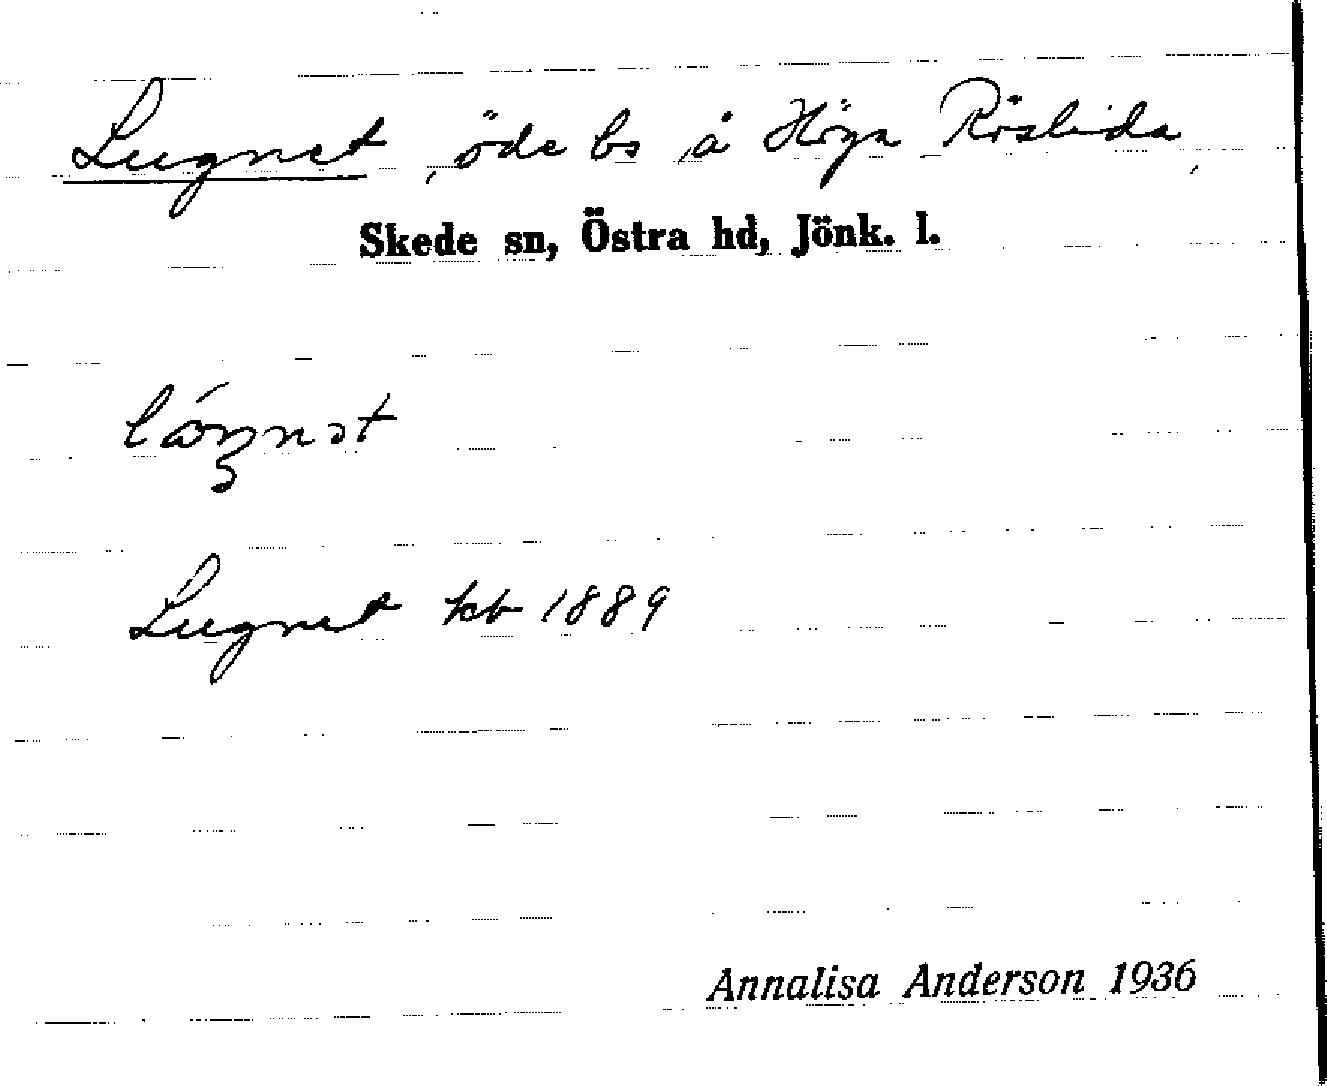 Lugnet, öde bs å Höga Röslida,
Skede sn, Östra hd, Jönk. l.
Lugnet kb 1889
Annalisa Anderson 1936